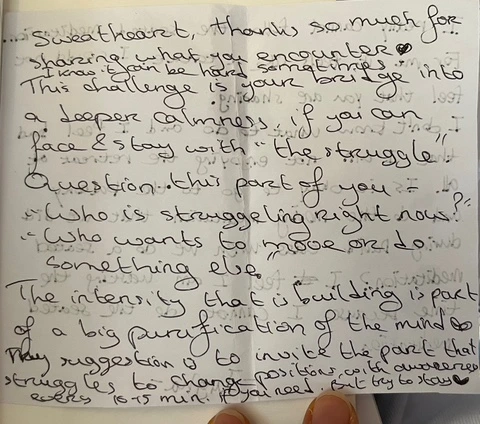 ... Sweatheart, thanks so much for
sharing what you encounter
I know it can be hard sometimes.
This challenge is your bridge into
a deeper calmness, if you can
face & stay with "the struggle"
Question this part of you = ...
"Who is struggeling right now?"
"Who wants to move or do
something else"
The intensity that is building is part
of a big purification of the mind
My suggestion is to invite the part that
struggles to change positions with awareness
every 10-15 min. if you need. But try to stay